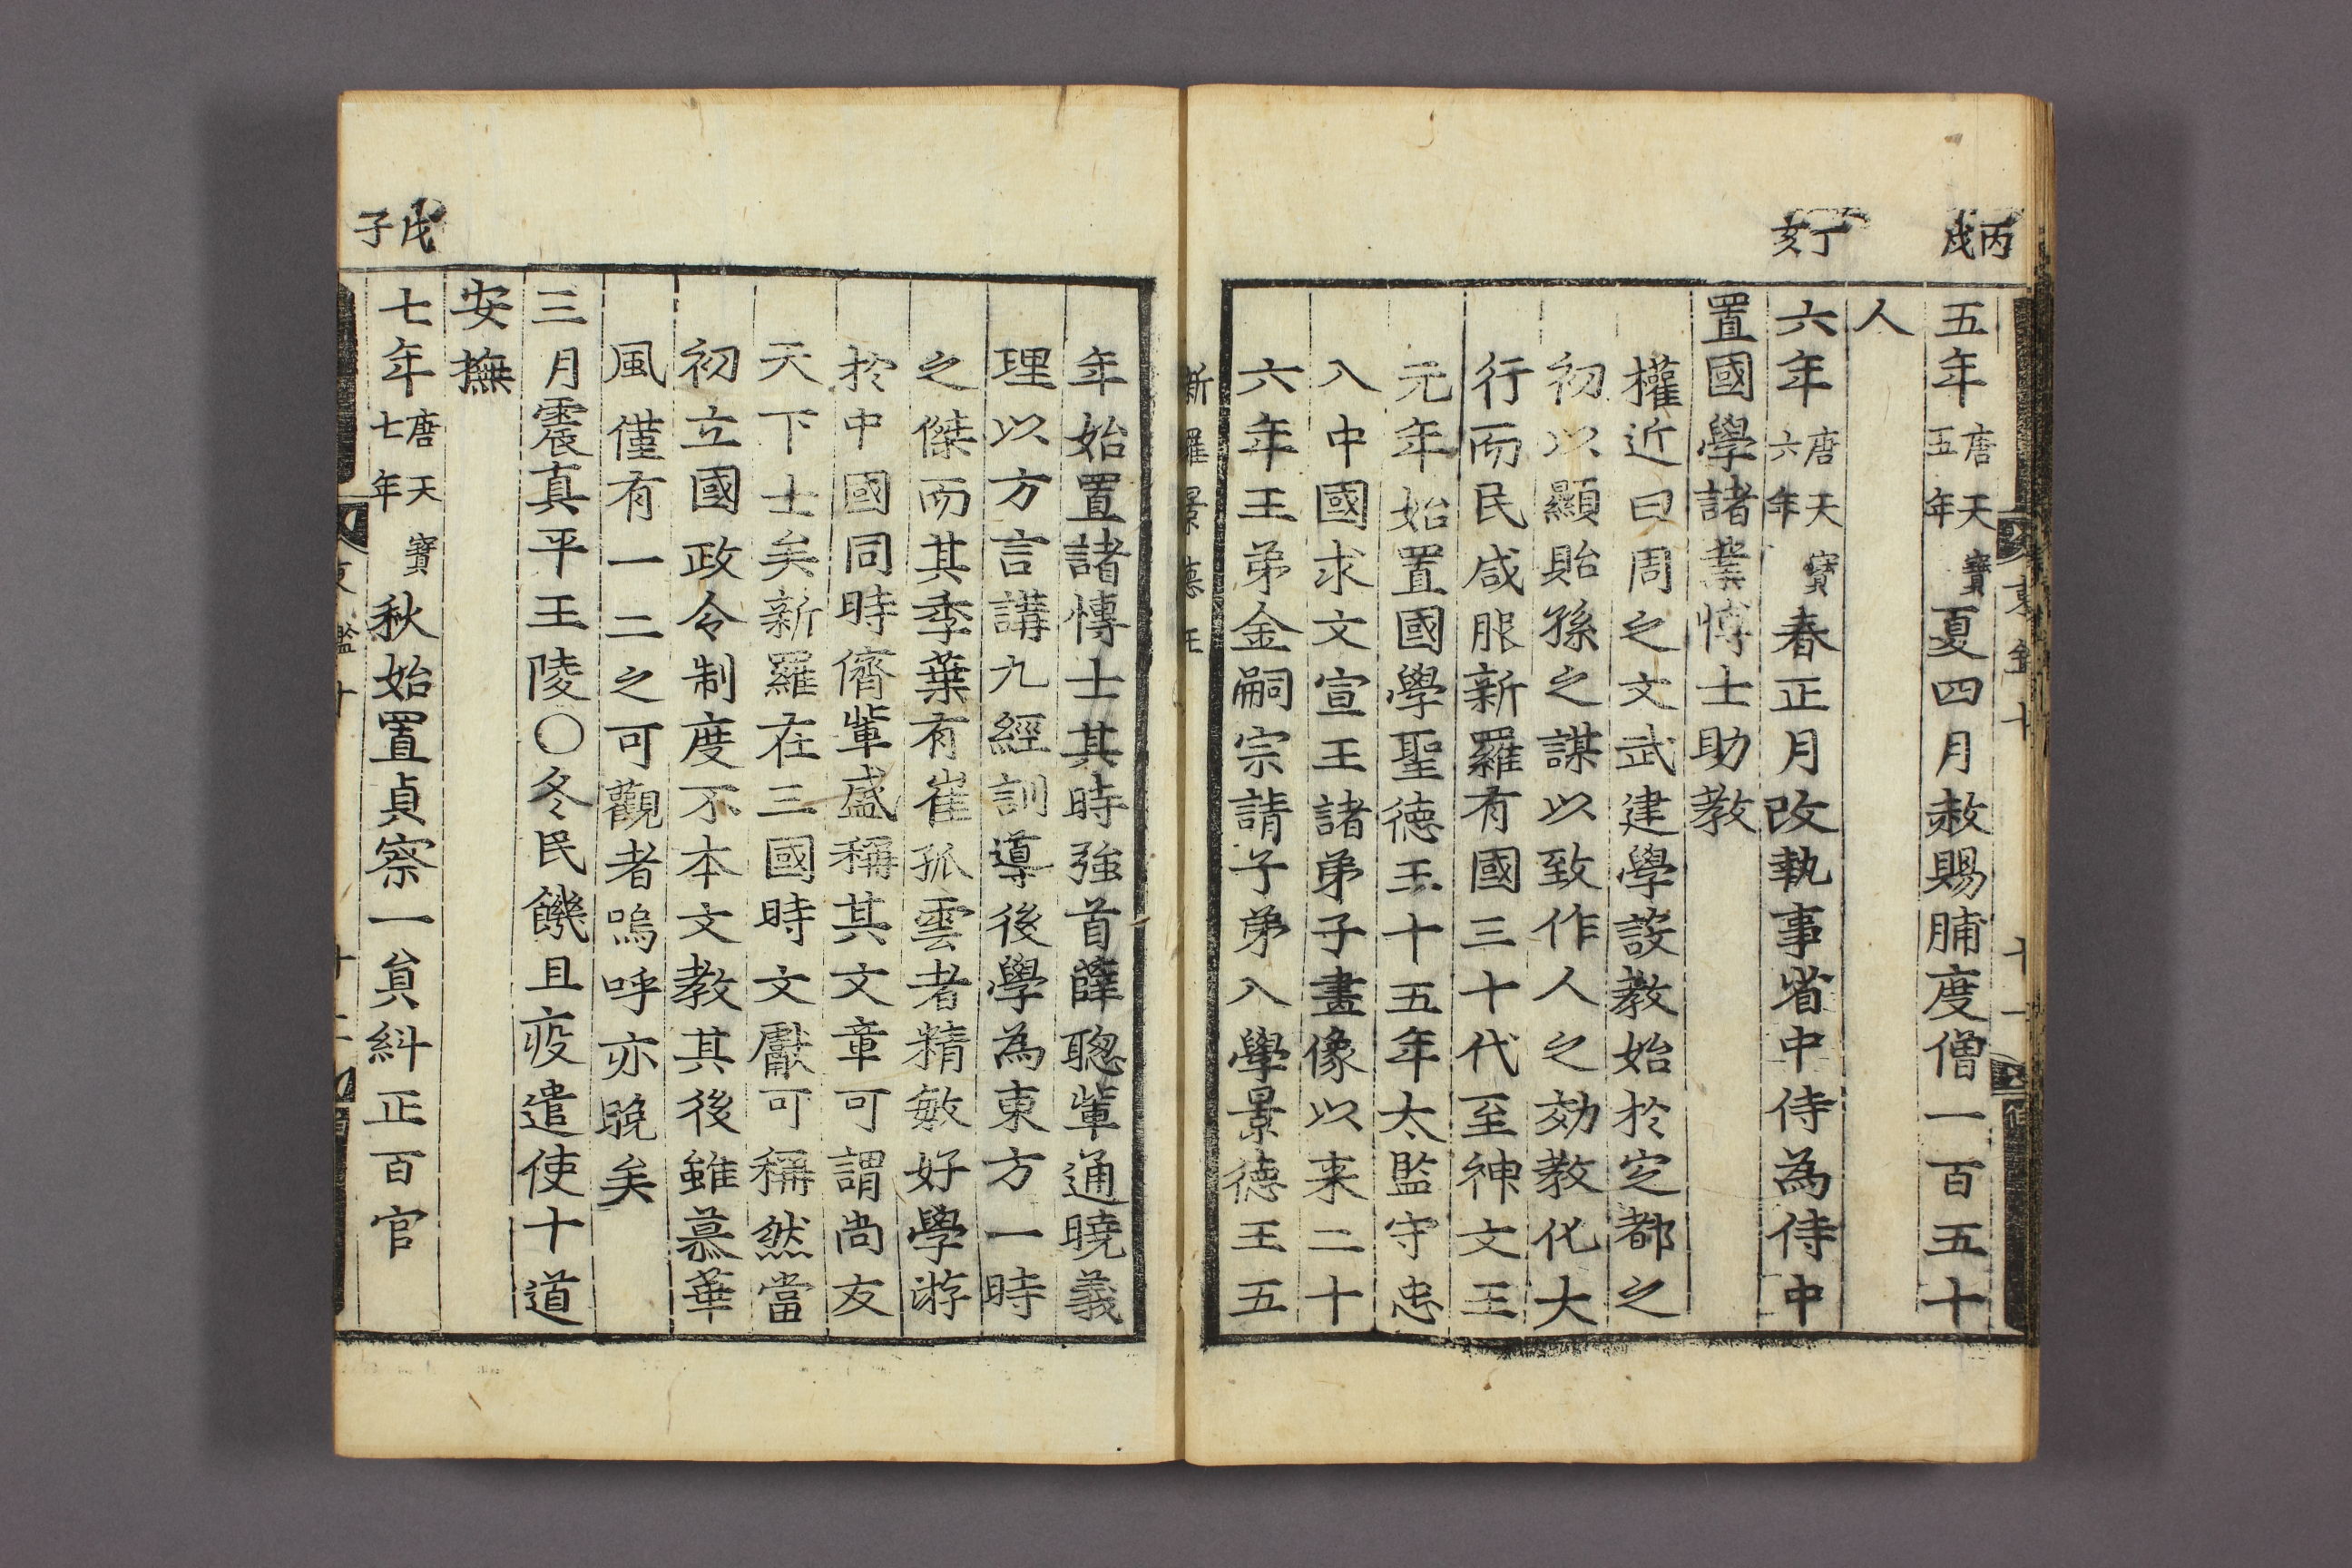 丙戌
五年唐天寶五年夏四月赦賜酺度僧一百五十
人
丁亥
六年唐天寶六年春正月改執事省中侍為侍中
置國學諸業博士助教
權近曰周之文武建學設教始於定都之
初以顯貽孫之謀以致作人之効教化大
行而民咸服新羅有國三十代至神文王
元年始置國學聖德王十五年太監守忠
入中國求文宣王諸弟子畫像以来二十
六年王弟金嗣宗請子弟入學景德王五
新羅景德王
年始置諸博士其時強首薛聦軰通曉義
理以方言講九經訓導後學為東方一時
之傑而其季葉有崔孤雲者精敏好學游
於中國同時儕軰盛稱其文章可謂尚友
天下士矣新羅在三國時文獻可稱然當
初立國政令制度不本文教其後雖慕華
風僅有一二之可觀者嗚呼亦晚矣
三月震真平王陵○冬民饑且疫遣使十道
安撫
戊子
七年唐天寶七年秋始置貞察一貟糾正百官